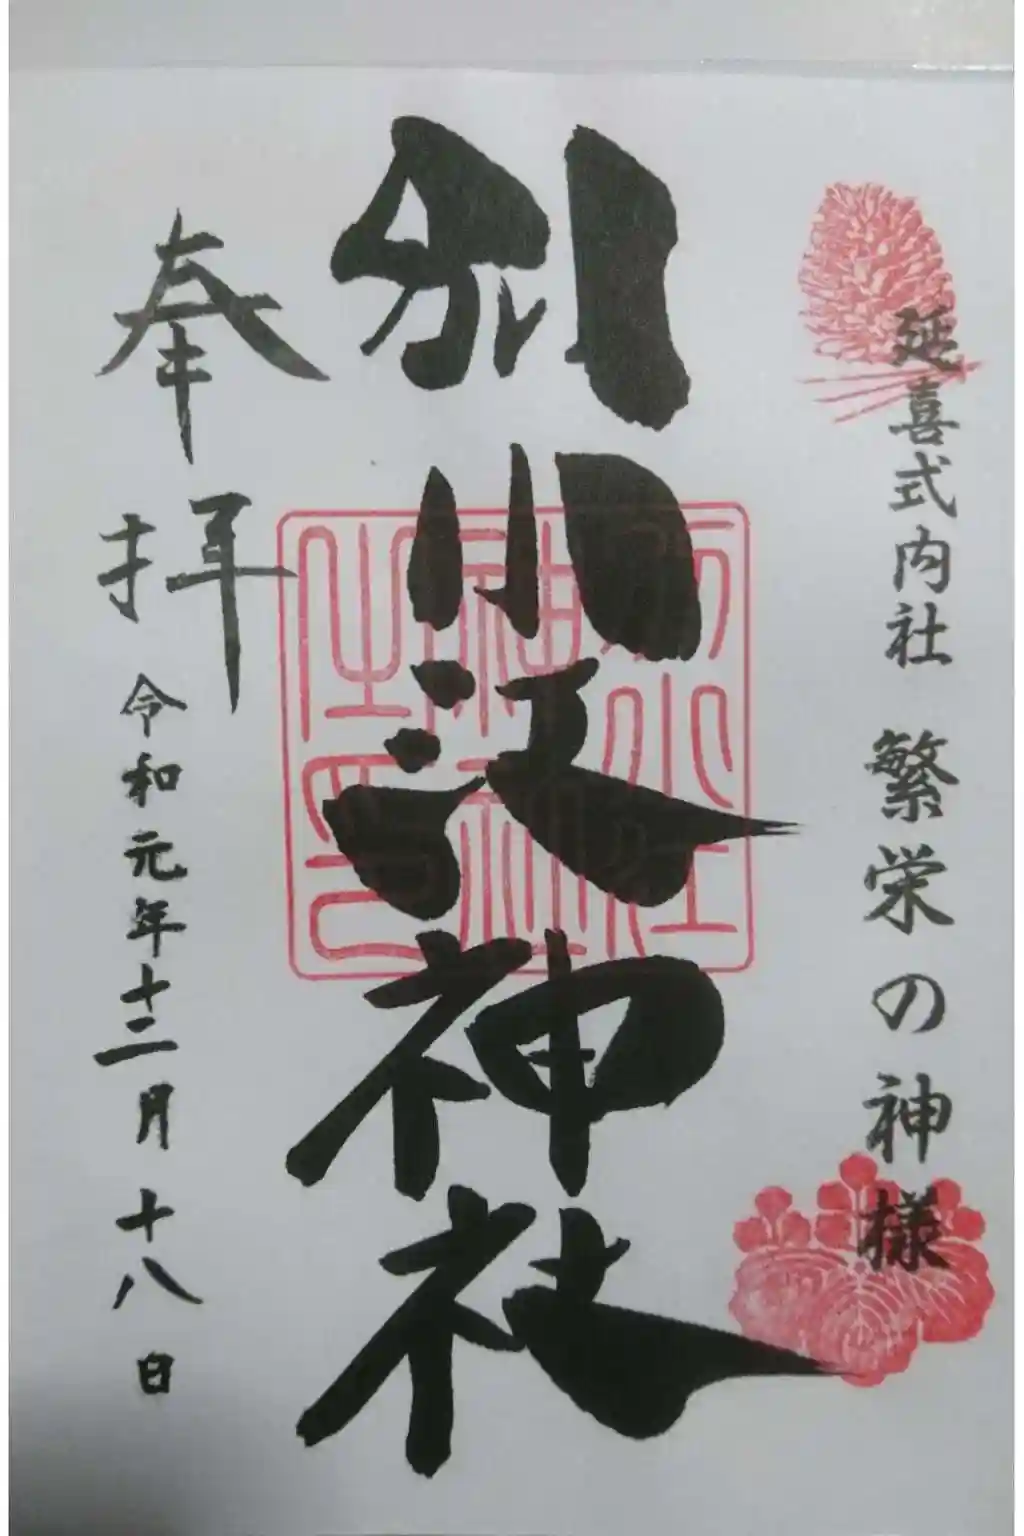 延喜式内社 繁栄の神様
別小江神社
別小江
神社
之印
奉拝
令和元年十二月十八日